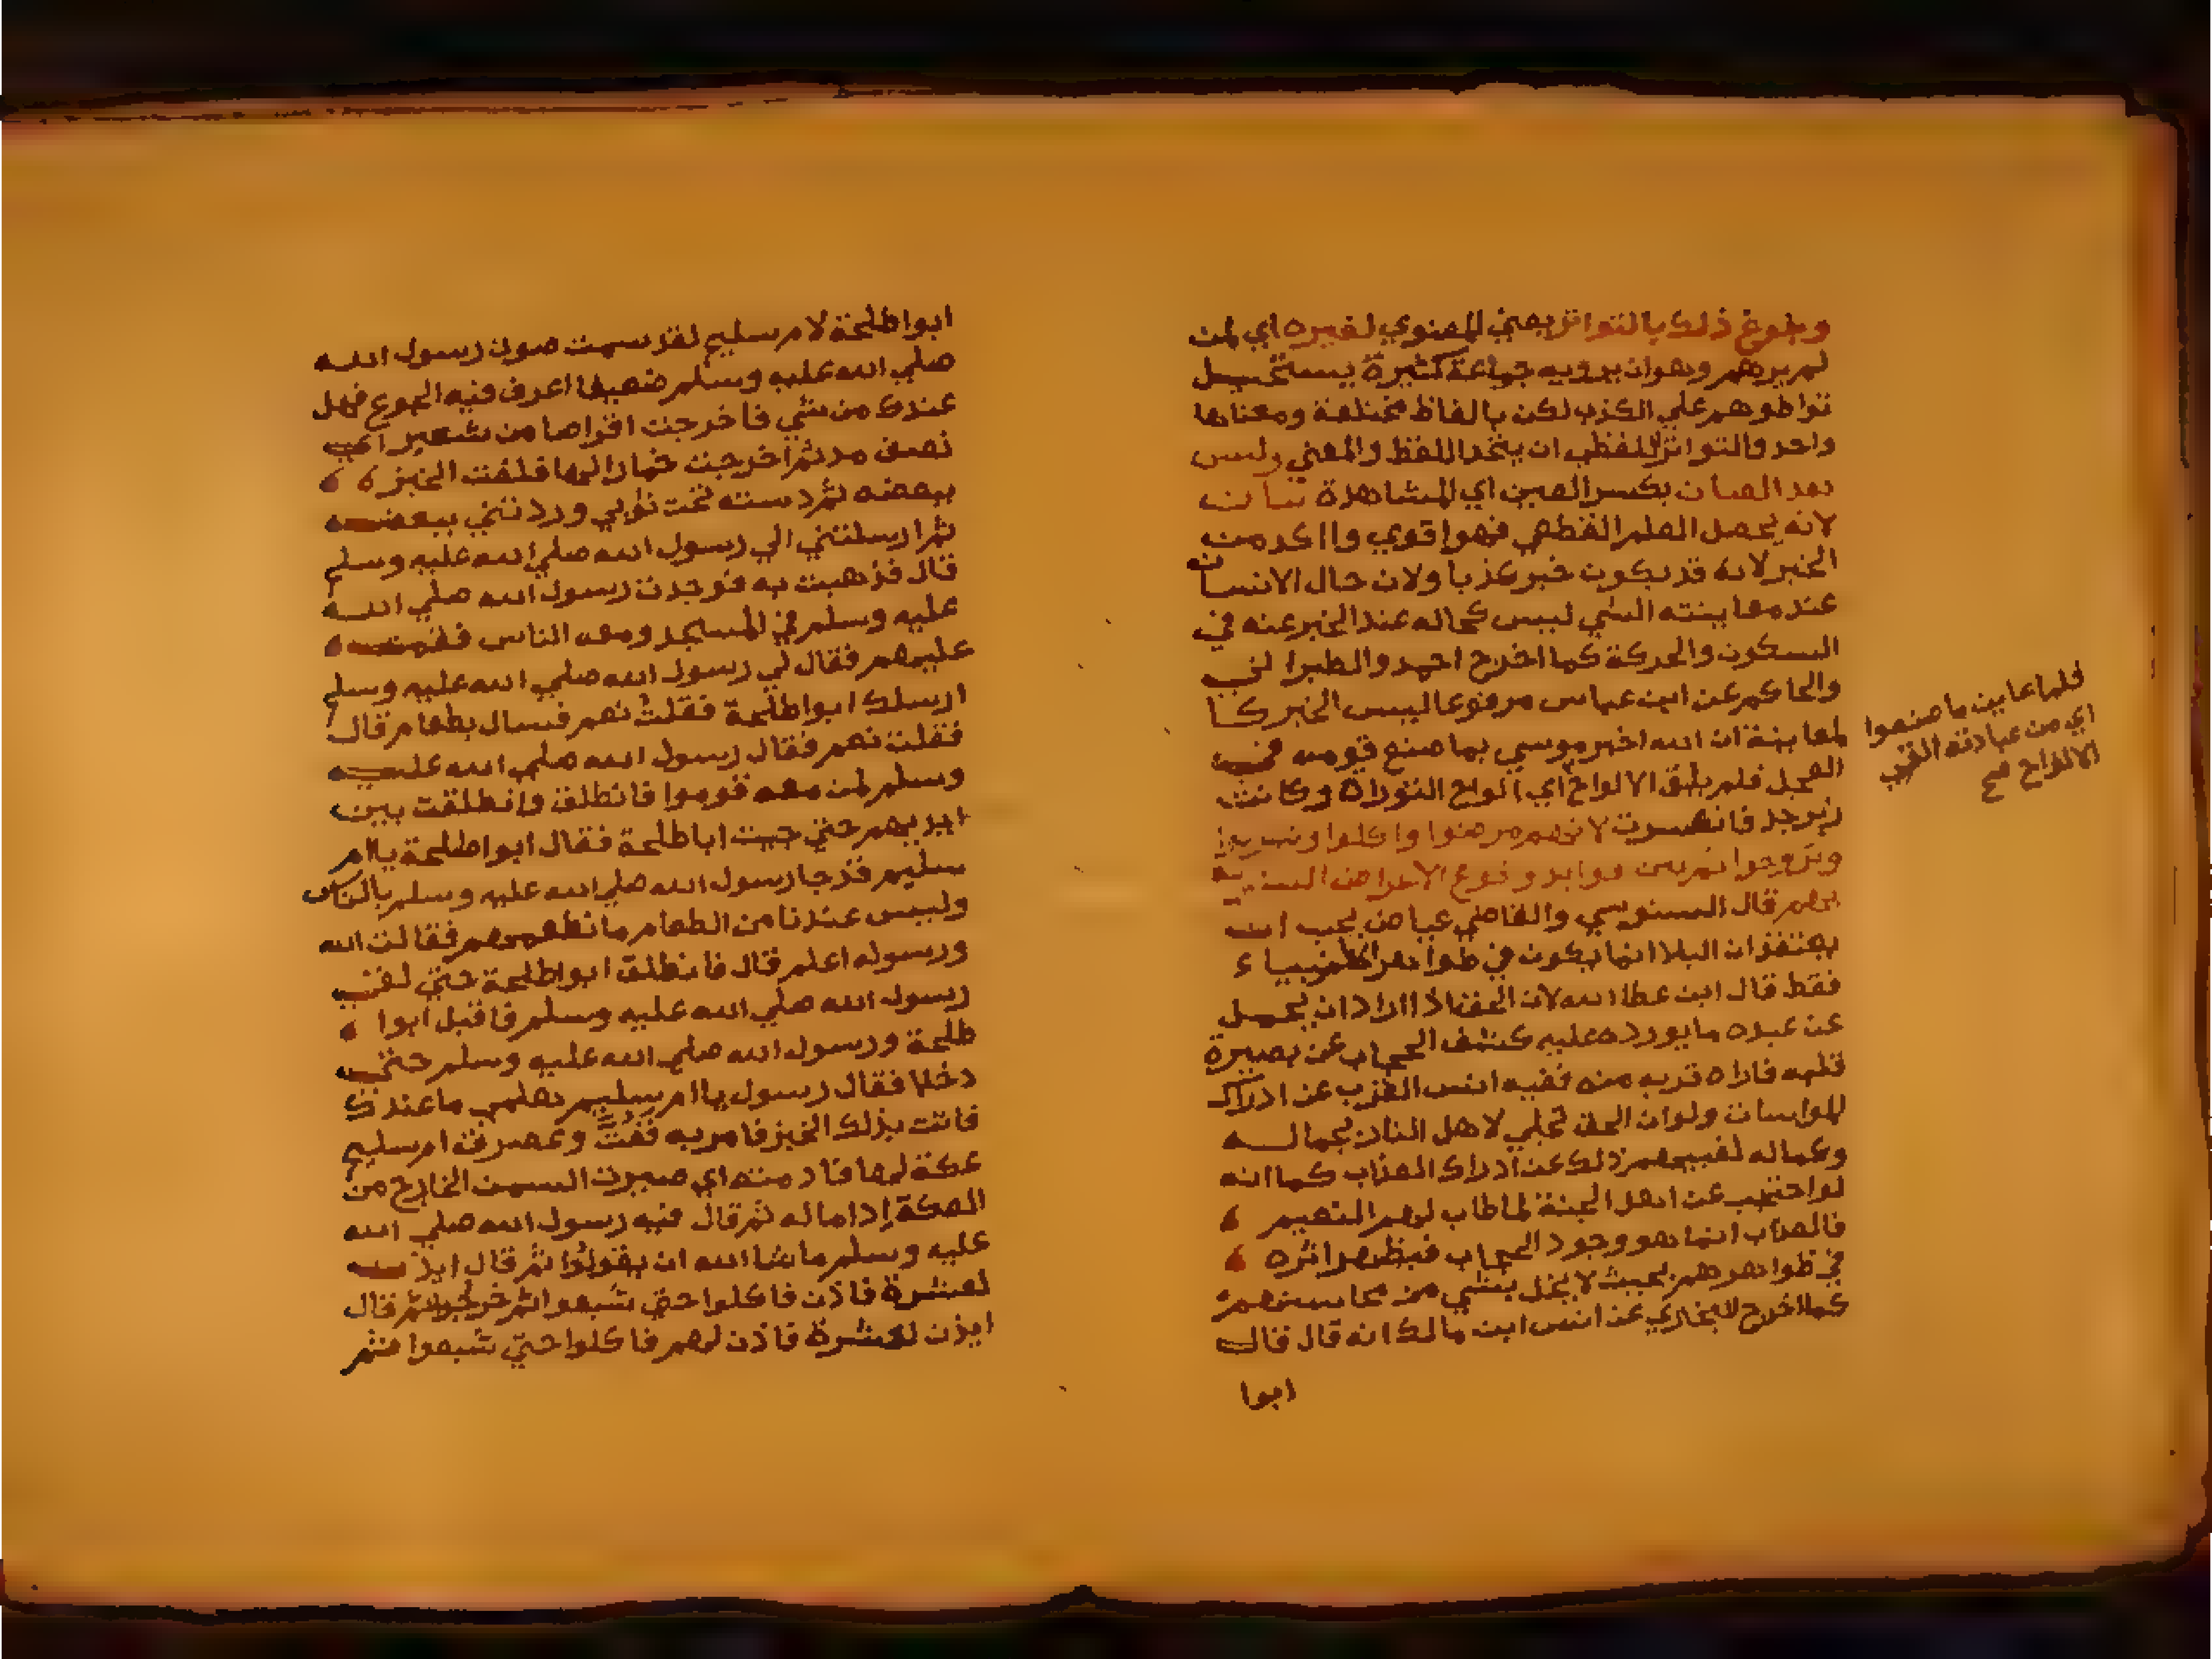 وبلوغ ذلك بالتواتر يعني المعنوي لغيره اي لمن
لم يرهم وهو ان يرويه جماعة كثيرة يستحيل
تواطوهم علي الكذب لكن بالفاظ مختلفة ومعناها
واحد والتواتر اللفظي ان يتحد اللفظ والمعني وليس
بعد العيان بكسر العين اي المشاهدة بيان
لانه يحصل العلم القطعي فهو اقوي واكد من
الخبر لانه قد يكون خبر كذبا ولان حال الانسان
عند معاينته الشي ليس كحاله عند الخبر عنه في
السكون والحركة كما اخرج احمد والطبراني
والحاكم عن ابن عباس مرفوعا ليس الخبر كا
لمعاينة ان الله اخبر موسي بما صنع قومه في
العجل فلم يلق الالواح اي الواح التوراة وكانت
زبرجد فانكسرت لانهم مرضوا واكلوا وشربوا
وتزوجوا وقوع الاعراض البشرية
بهم قال السنوسي والقاضي عياض يجب ان
يعتقد ان البلا انما يكون في ظواهر الانبياء
فقط قال ابن عطا الله لان الحق اذا اراد ان يحمل
عن عبده ما يورده عليه كشف الحجاب عن بصيرة
قلبه فاراه قربه منه فغيبه انس القرب عن ادراك
المولمات ولو ان الحق تجلي لاهل النار بجماله
وكماله لغيبهم ذلك عن ادراك العذاب كما انه
لو احتجب عن اهل الجنة لما طاب لهم النعيم
فالعذاب انما هو وجود الحجاب فيظهر اثره
في ظواهرهم بحيث لا يخل بشي من محاسنهم
كما اخرج البخاري عن انس ابن مالك انه قال قال
ابوا
فلما عاين ما صنعوا
اي من عبادته القي
الالواح صح
ابوا طلحة لام سليم لقد سمعت صوت رسول الله
صلي الله عليه وسلم ضعيفا اعرف فيه الجوع فهل
عندك من شي فاخرجت اقراصا من شعير اي
نصف مد ثم اخرجت خمارا لها فلفت الخبز
ببعضه ثم دسته تحت ثوبي وردتني ببعضه
ثم ارسلتني الي رسول الله صلي الله عليه وسلم
قال فذهبت به فوجدت رسول الله صلي الله
عليه وسلم في المسجد ومعه الناس فقمت
عليهم فقال لي رسول الله صلي الله عليه وسلم
ارسلك ابوا طلحة فقلت نعم فسال بطعام قال
فقلت نعم فقال رسول الله صلي الله عليه
وسلم لمن معه قوموا فانطلق وانطلقت بين
ايديهم حتي جيت ابا طلحة فقال ابوا طلحة يا ام
سليم قد جا رسول الله صلي الله عليه وسلم بالناس
وليس عندنا من الطعام ما نطعمهم فقالت الله
ورسوله اعلم قال فانطلق ابوا طلحة حتي لقي
رسول الله صلي الله عليه وسلم فاقبل ابوا
طلحة ورسول الله صلي الله عليه وسلم حتي
دخلا فقال رسول يا ام سليم هلمي ما عندك
فاتت بذلك الخبز فامر به فَفُتَّ وعصرت ام سليم
عكة لها فادمته اي صيرت السمن الخارج من
العكة اداما له ثم قال فيه رسول الله صلي الله
عليه وسلم ما شا الله ان يقولوا ثم قال ايذن
لعشرة فاذن فاكلوا حتي شبعوا ثم خرجوا ثم قال
ايذن لعشرة فاذن لهم فاكلوا حتي شبعوا ثم